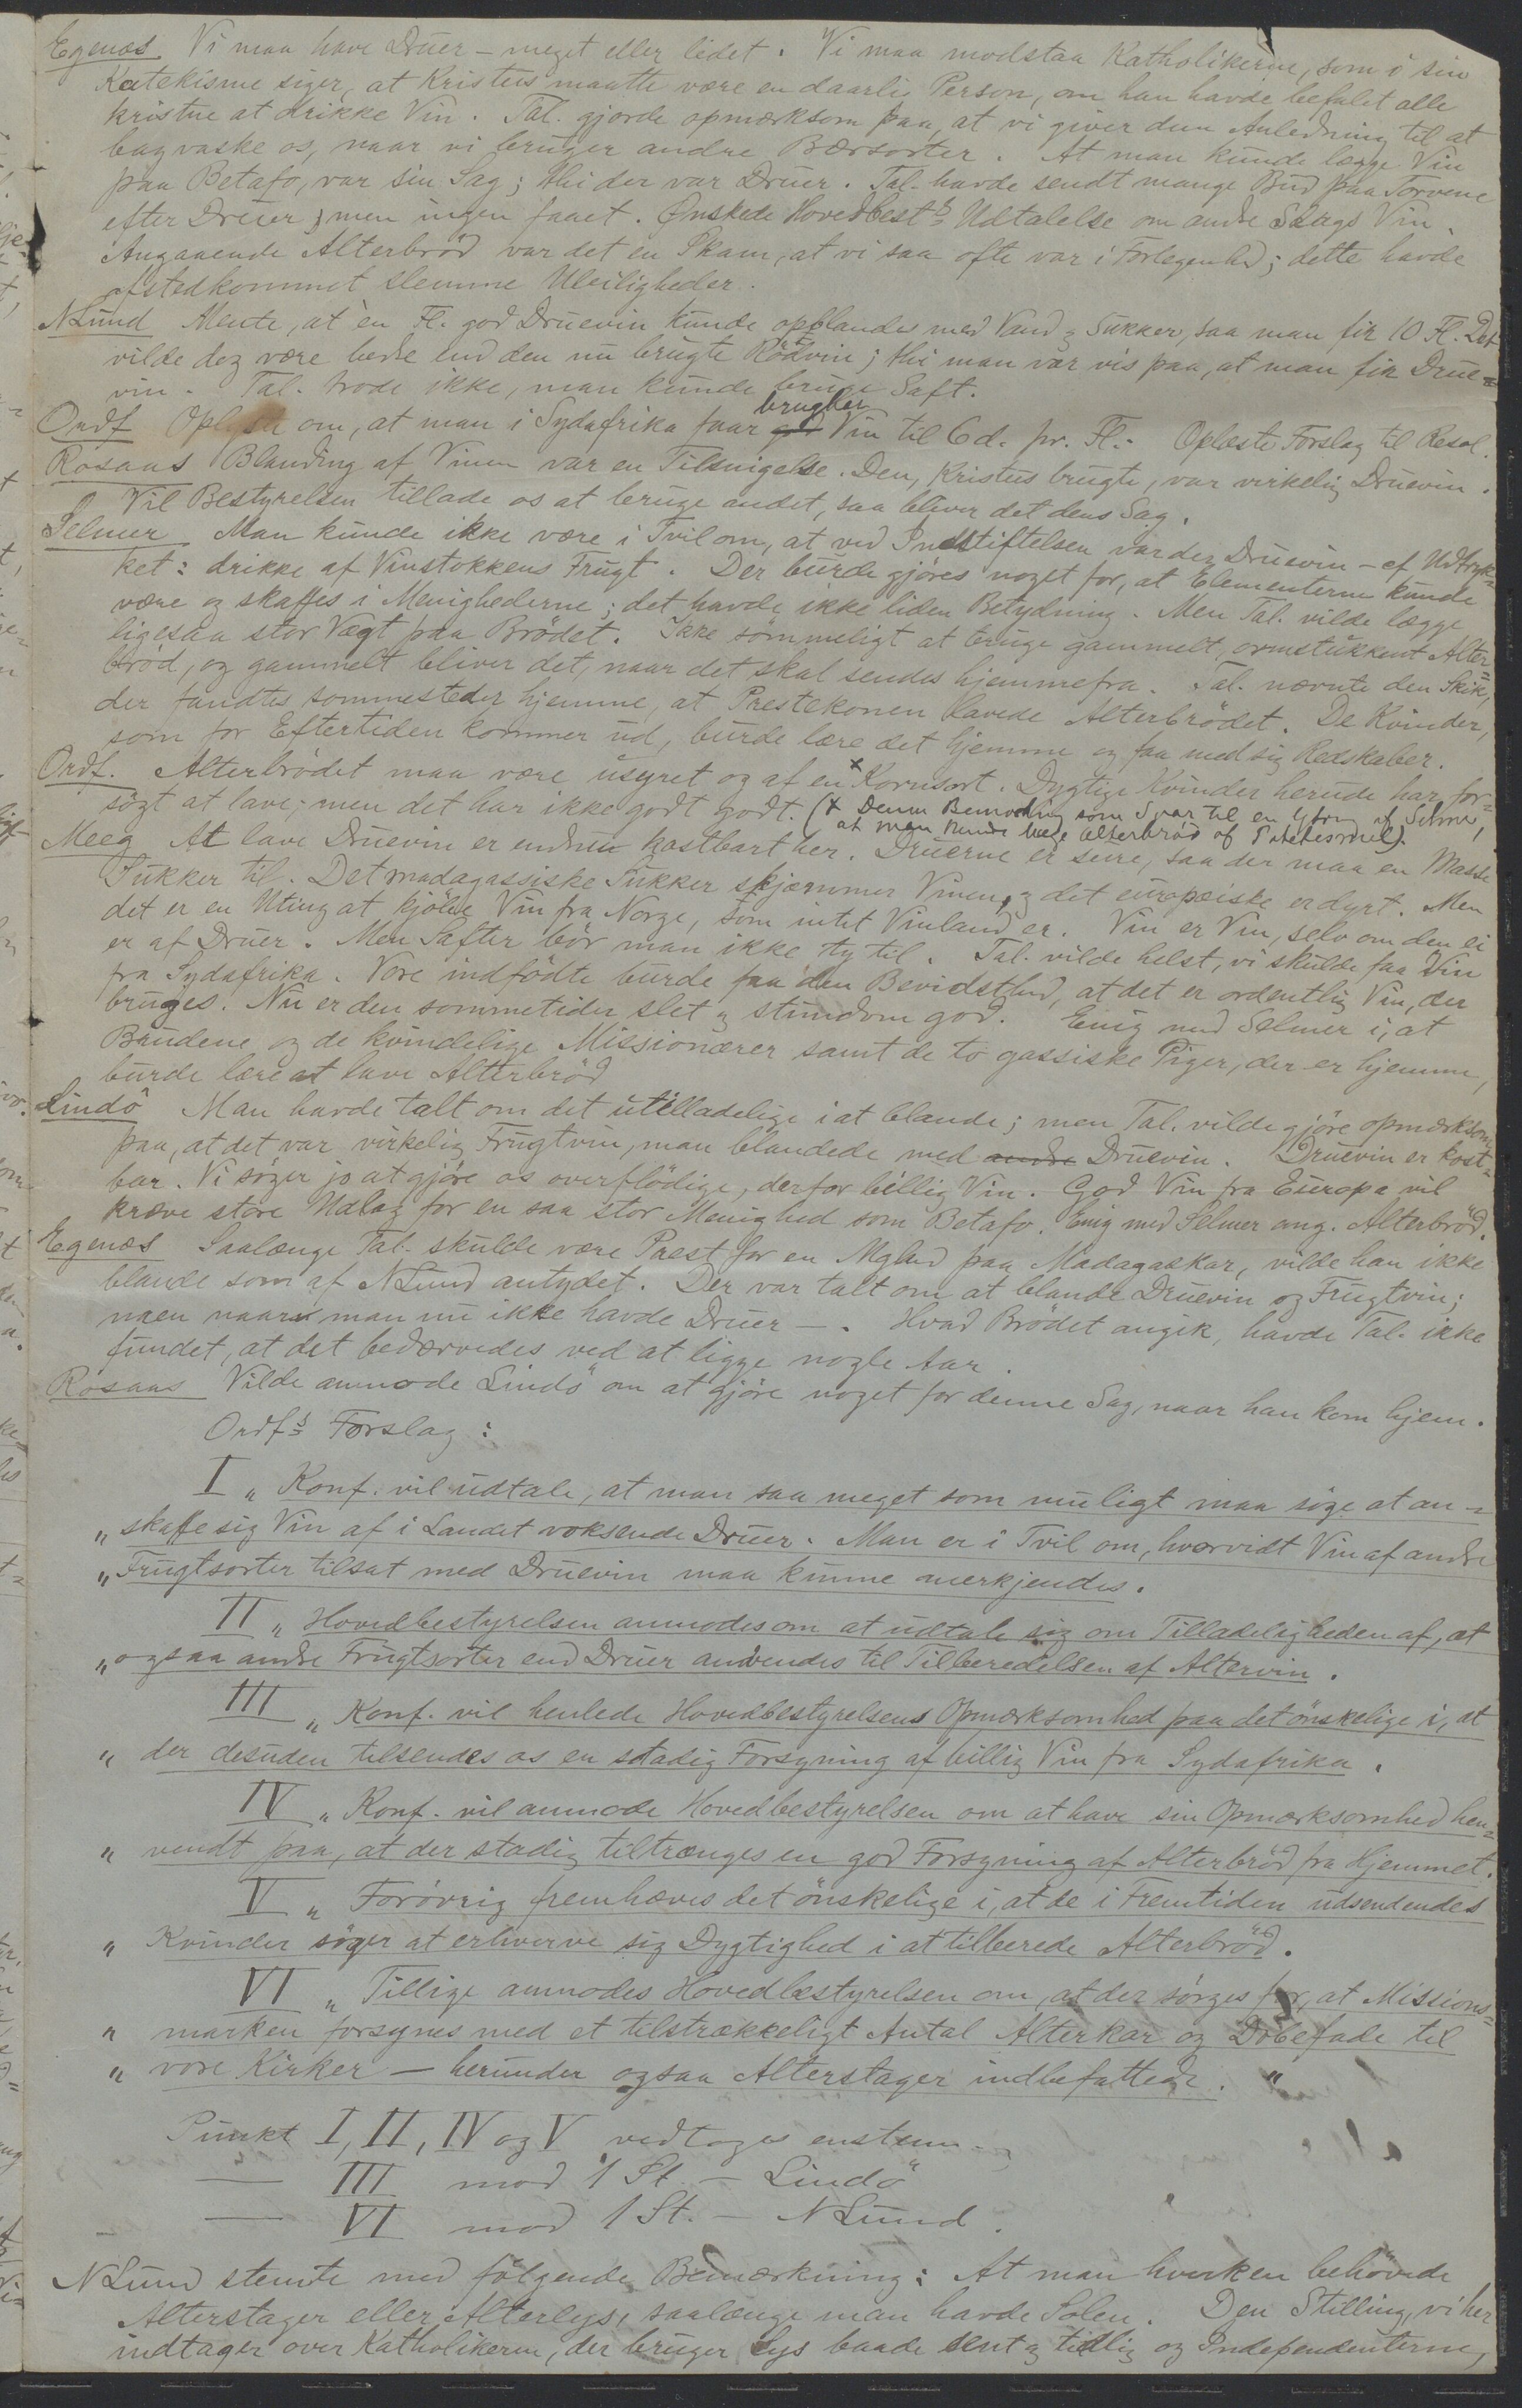 Egenæs Vi maa have Druer – meget eller lidet. Vi maa modstaa Katholikerne, som i sin
Katekisme siger, at Kristus maatte være en daarli Person, om han havde befalet alle
kristne at drikke Vin. Tal. gjorde opmærksom paa, at vi giver dem Anledning til at
bagvaske os, naar vi bruger andre Bærsorter. At man kunde lægge Vin
paa Betafo, var sin Sag; thi der var Druer. Tal. havde sendt mange Bud paa Torvene
efter Druer, men ingen faaet. Ønskede Hovedbest.s Udtalelse om andre Slags Vin.
Angaaende Alterbrød var det en Skam, at vi saa ofte var i Forlegenhed; dette havde
afstedkommet slemme Uleiligheder.
NLund Mente, at èn Fl. god Druevin kunde opblandes med Vand og Sukker, saa man fik 10 Fl. Det
vilde dog være bedre end den nu brugte Rödvin; thi man var vis paa, at man fik Drue=
vin. Tal. trode ikke, man kunde bruge Saft.
Ordf Oplyste om, at man i Sydafrika faar god brugbar Vin til 6 d. pr. Fl. – Oplæste Forslag til Resol.
Rosaas Blanding af Vinen var en Tilsnigelse. Den, Kristus brugte, var virkelig Druevin.
Vil Bestyrelsen tillade os at bruge andet, saa bliver det dens Sag.
Selmer Man kunde ikke være i Tvil om, at ved Indstiftelsen var der Druevin – cf Udtryk=
ket: drikke af Vinstokkens Frugt. Der burde gjöres noget for, at Elementerne kunde
være og skaffes i Menighederne; det havde ikke liden Betydning. Men Tal. vilde lægge
ligesaa stor Vægt paa Brödet. Ikke sömmeligt at bruge gammelt, ormstukkent Alter=
bröd, og gammelt bliver det, naar det skal sendes hjemmefra. Tal. nævnte den Skik,
der fandtes sommesteder hjemme, at Prestekonen lavede Alterbrödet. De Kvinder,
som for Eftertiden kommer ud, burde lære det hjemme og faa med sig Redskaber.
Ordf. Alterbrödet maa være usyret og af en x Kornsort. Dygtige Kvinder herude har for=
sögt at lave; men det har ikke godt godt. (x Denne Bemærkning som Svar til en Ytring af Selmer,
at man kunde lave Alterbröd af Potetesmel).
Meeg At lave Druevin er endnu kostbart her. Druerne er sure, saa der maa en Masse
Sukker til. Det madagassiske Sukker skjæmmer Vinen, og det europæiske er dyrt. Men
det er en Uting at kjöbe Vin fra Norge, som intet Vinland er. Vin er Vin, selv om den ei
er af Druer. Men Safter bör man ikke ty til. Tal. vilde helst, vi skulde faa Vin
fra Sydafrika. Vore indfödte burde faa den Bevidsthed, at det er ordentlig Vin, der
bruges. Nu er den sommetider slet og stundom god. Enig med Selmer i, at
Brudene og de kvindelige Missionærer samt de to gassiske Piger, der er hjemme,
burde lære at lave Alterbröd
Lindö Man havde talt om det utilladelige i at blande; men Tal. vilde gjöre opmærksom
paa, at det var virkelig Frugtvin, man blandede med andre Druevin. Druevin er kost=
bar. Vi söger jo at gjöre os overflödige, derfor billig Vin. – God Vin fra Europa vil
kræve store Udlæg for en saa stor Menighed som Betafo. Enig med Selmer ang. Alterbröd.
Egenæs Saalænge Tal. skulde være Prest for en Mghed paa Madagaskar, vilde han ikke
blande som af NLund antydet. Der var talt om at blande Druevin og Frugtvin;
men naar man nu ikke havde Druer –. Hvad Brödet angik, havde Tal. ikke
fundet, at det bedærvedes ved at ligge nogle Aar.
Rosaas Vilde anmode Lindö om at gjöre noget for denne Sag, naar han kom hjem.
Ordf.s Forslag:
I „ Konf. vil udtale, at man saa meget som muligt maa söge at an=
„ skaffe sig Vin af i Landet voksende Druer. Man er i Tvil om, hvorvidt Vin af andre
„ Frugtsorter tilsat med Druevin maa kunne anerkjendes.
II „ Hovedbestyrelsen anmodes om at udtale sig om Tilladeligheden af, at
„ ogsaa andre Frugtsorter end Druer anvendes til Tilberedelsen af Altervin.
III „ Konf. vil henlede Hovedbestyrelsens Opmærksomhed paa det önskelige i, at
„ der desuden tilsendes os en stadig Forsyning af billig Vin fra Sydafrika.
IV „ Konf. vil anmode Hovedbestyrelsen om at have sin Opmærksomhed hen=
„ vendt paa, at der stadig tiltrænges en god Forsyning af Alterbröd fra Hjemmet.
V „ Forövrig fremhæves det önskelige i, at de i Fremtiden udsendendes
„ Kvinder söger at erhverve sig Dygtighed i at tilberede Alterbröd.
VI „ Tillige anmodes Hovedbestyrelsen om, at der sörges for, at Missions=
„ marken forsynes med et tilstrækkeligt Antal Alterkar og Döbefade til
„ vore Kirker – herunder ogsaa Alterstager indbefattede. "
Punkt I, II, IV og V vedtoges enstem.
— III mod 1 St. – Lindö
— VI mod 1 St. – NLund.
NLund stemte med fölgende Bemærkning: At man hverken behövede
Alterstager eller Alterlys, saalænge man havde Solen. Den Stilling, vi her
indtager over Katholikerne, der bruger Lys baade sent og tidlig og Independenterne,